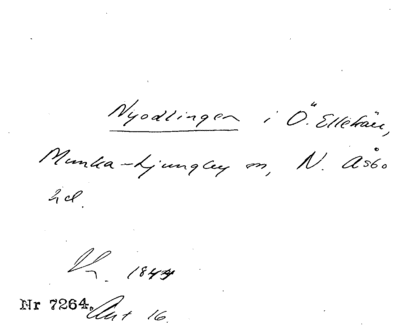 Nyodlingen i Ö. Elleträu,
Munka-Ljungby sn, N. Åsbo
hd.
1844
Nr 7264. Akt 16.